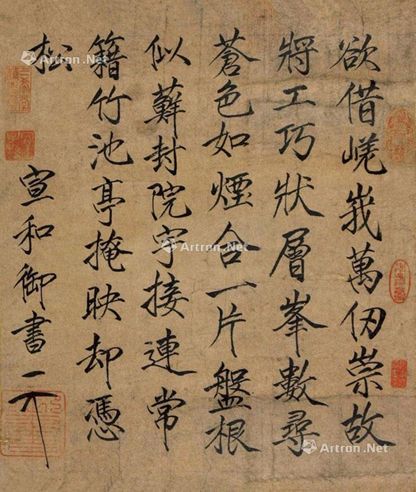 欲借嵯峩萬仞崇故
將工巧狀層峯數尋
蒼色如煙合一片盤根
似蘚封院宇接連常
籍竹池亭掩映却憑
松
宣和御書
Artron.Net
Artron.Net
Artron.Net
Artron.Net
Artron.Net